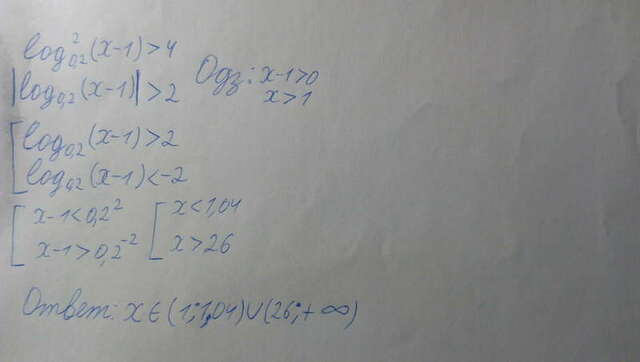 log²₀,₂(x-1)>4
|log₀,₂(x-1)|>2
Одз: x-1>0
x>1
[log₀,₂(x-1)>2
log₀,₂(x-1)<-2
[x-1<0,2² [x<1,04
x-1>0,2⁻² x>26
Ответ: x∈(1;1,04)∪(26;+∞)